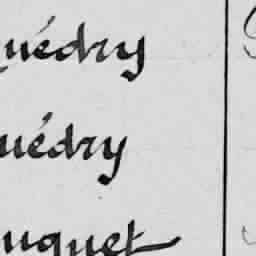 uédry
uédry
uquet